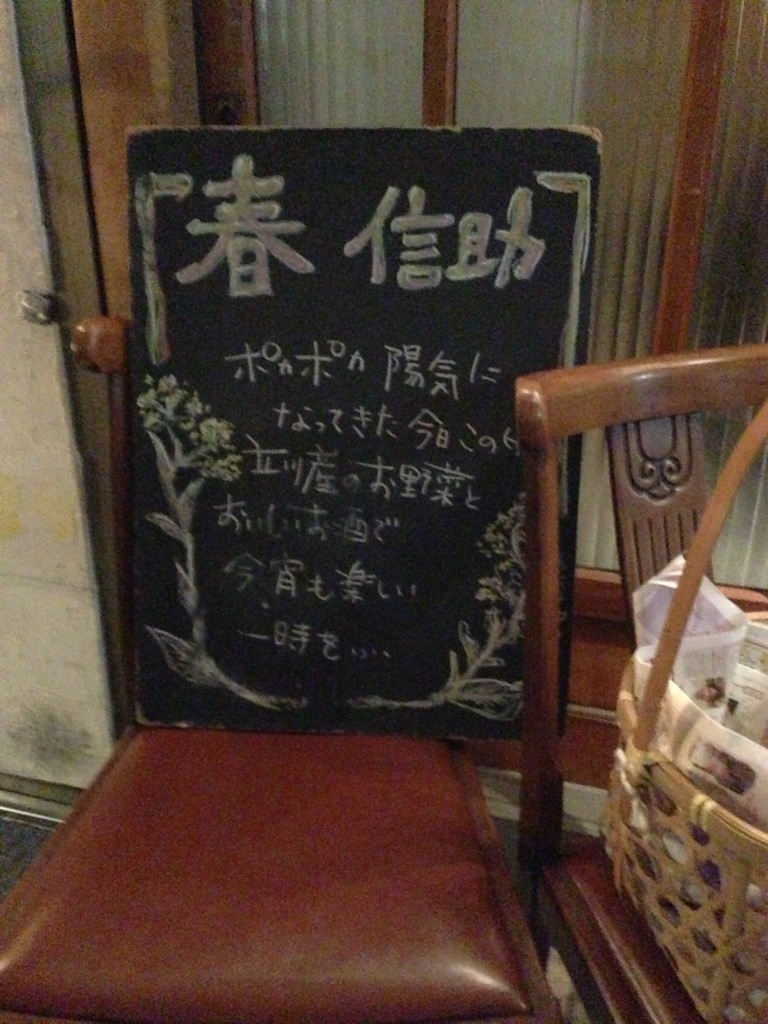 春 信助
ポカポカ 陽気に
なってきた 今日この
立川産のお野菜と
おいしいお酒で
今宵も楽しい
一時を....